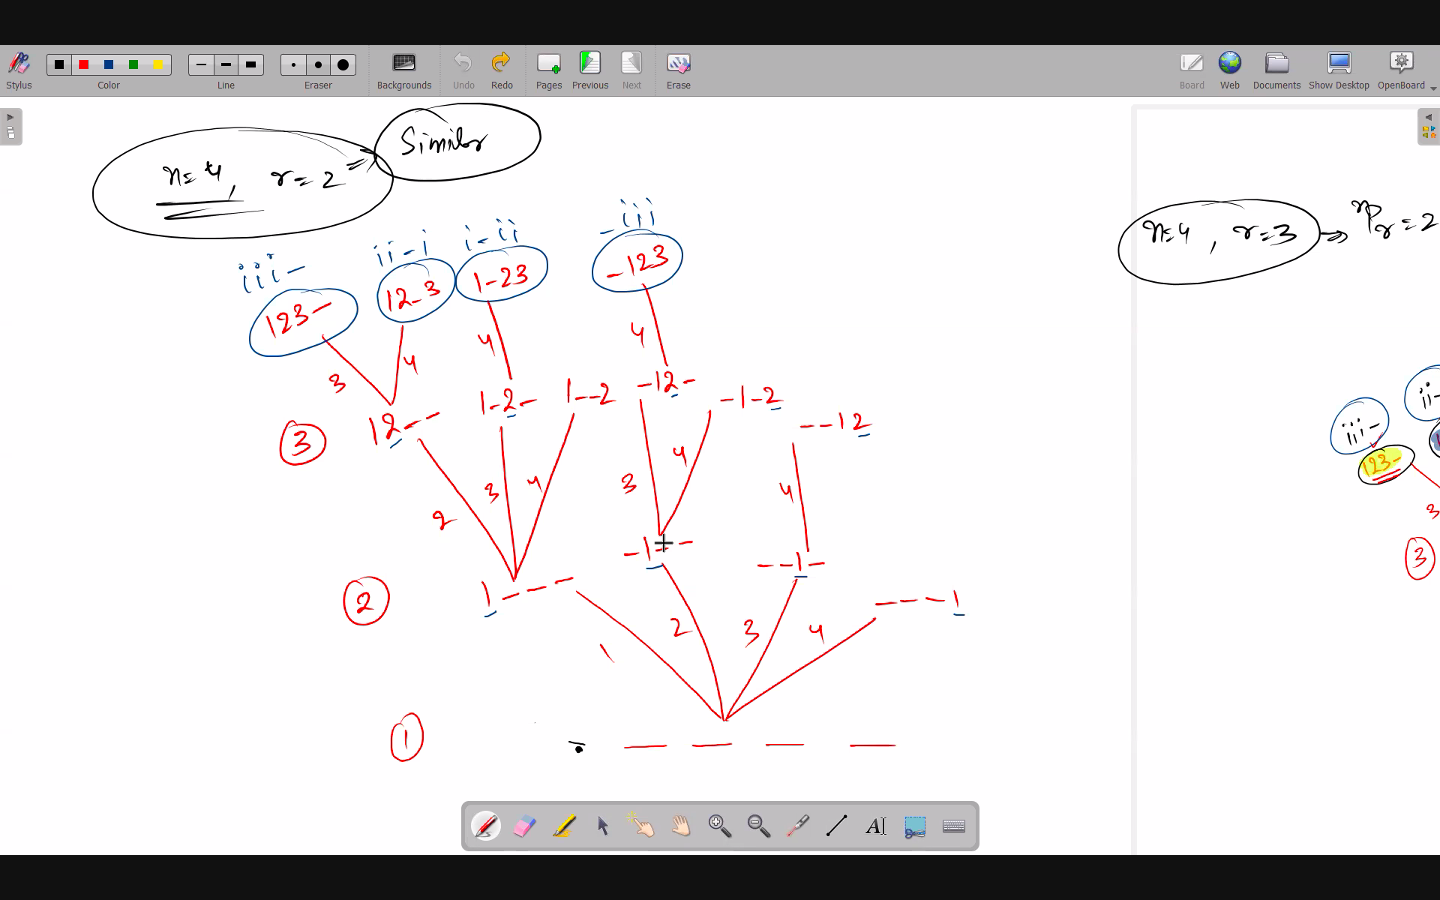 Stylus
Color
Line
Eraser
Backgrounds
Undo
Redo
Pages
Previous
Next
Erase
Board
Web
Documents
Show Desktop
OpenBoard
n=4, r=2 ⇒ Similar
n=4, r=3 ⇒ nPr = 2
iii-
ii-i
i-ii
-iii
123-
12-3
1-23
-123
3
4
4
4
3
12--
1-2-
1--2
-12-
-1-2
--12
2
3
4
3
4
4
2
1---
-1--
--1-
---1
1
2
3
4
1
iii-
ii-
123-
3
3